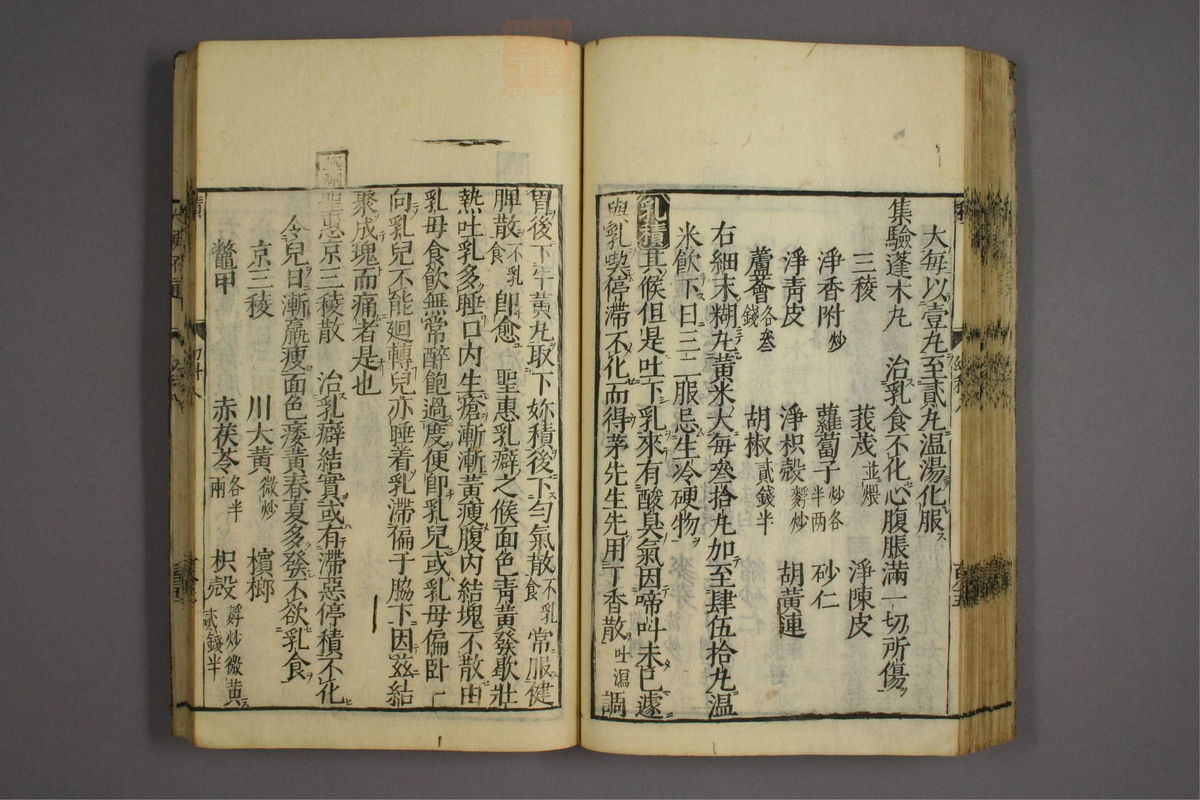 大每以壹丸至貳丸温湯化服
集驗蓬木丸 治乳食不化心腹脹滿一切所傷
三稜 莪茂並煨 淨陳皮
淨香附炒 蘿蔔子炒各半両 砂仁
淨靑皮 淨枳殼麸炒 胡黃連
蘆薈各叁錢 胡椒貳錢半
右細末糊丸黃米大每叁拾丸加至肆伍拾丸温
米飮下日三二服忌生冷硬物
乳積其候但是吐下乳來有酸臭氣因啼叫未已遽
與乳喫停滯不化而得茅先生先用丁香散吐瀉調
胃後下牛黃丸取下妳積後下勻氣散不乳食常服健
脾散不乳食卽愈 聖惠乳癖之候面色靑黃發歇壯
熱吐乳多睡口內生瘡漸漸黃瘦腹內結塊不散由
乳母食飮無常醉飽過度便卽乳兒或乳母偏卧一
向乳兒不能迴轉兒亦睡着乳滯偏于脇下因兹結
聚成塊而痛者是也
聖惠京三稜散 治乳癖結實或有滯惡停積不化
令兒日漸羸瘦面色痿黃春夏多發不欲乳食
京三稜 川大黃微炒 檳榔
鼈甲 赤茯苓各半兩 枳殼麸炒微黃貳錢半